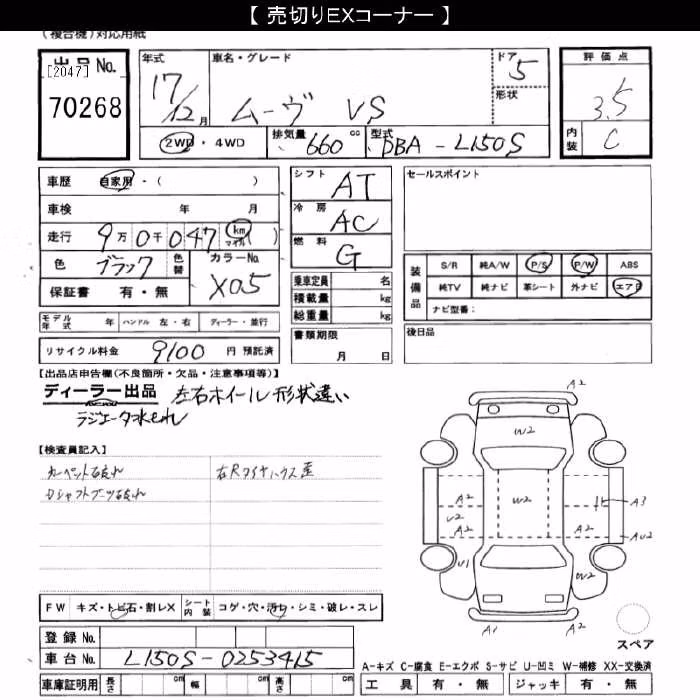 【 売切りEXコーナー 】
(複合機)対応用紙
出品 No.
[2047]
70268
年式
17/12月
車名・グレード
ムーヴ VS
ドア
5
形状
評価点
3.5
内装
C
2WD・4WD
排気量 660 cc
型式 DBA - L150S
車歴 自家用・( )
車検 年 月
走行 9万0千047 km マイル ( )
色 ブラック 色替
カラーNo. X05
保証書 有・無
シフト AT
冷房 AC
燃料 G
乗車定員 名
積載量 kg
総重量 kg
セールスポイント
装備品
S/R 純A/W P/S P/W ABS
純TV 純ナビ 革シート 外ナビ エアB
ナビ型番:
モデル年式 年 ハンドル 左・右 ディーラー・並行
リサイクル料金 9100 円 預託済
書類期限
月 日
後日品
【出品店申告欄(不良箇所・欠品・注意事項等)】
ディーラー出品 左右ホイール形状違い
ラジエータ水もれ
【検査員記入】
カーペット
右Rタイヤハウス歪
A2
W2
A2
W2
A2
V2
A3
A2
A2
AU2
U1
W2
A1
A2
スペア
FW キズ・トビ石・割レX シート内装 コゲ・穴・汚レ・シミ・破レ・スレ
登録 No.
車台 No. L150S-0253415
A-キズ C-腐食 E-エクボ S-サビ U-凹ミ W-補修 XX-交換済
車庫証明用 長さ cm 幅 cm 高さ cm
工具 有・無 ジャッキ 有・無